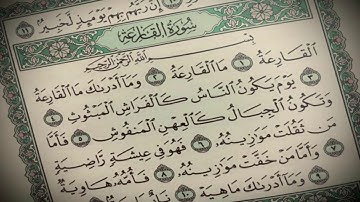 إِنَّ رَبَّهُم بِهِمْ يَوْمَئِذٍ لَّخَبِيرٌ ١١
سُورَةُ القَارِعَةِ
بِسْمِ اللَّهِ الرَّحْمَٰنِ الرَّحِيمِ
الْقَارِعَةُ ١ مَا الْقَارِعَةُ ٢ وَمَا أَدْرَىٰكَ مَا الْقَارِعَةُ
٣ يَوْمَ يَكُونُ النَّاسُ كَالْفَرَاشِ الْمَبْثُوثِ ٤
وَتَكُونُ الْجِبَالُ كَالْعِهْنِ الْمَنفُوشِ ٥ فَأَمَّا
مَن ثَقُلَتْ مَوَٰزِينُهُۥ ٦ فَهُوَ فِى عِيشَةٍ رَّاضِيَةٍ
٧ وَأَمَّا مَنْ خَفَّتْ مَوَٰزِينُهُۥ ٨ فَأُمُّهُۥ هَاوِيَةٌ
٩ وَمَا أَدْرَىٰكَ مَا هِيَهْ ١٠